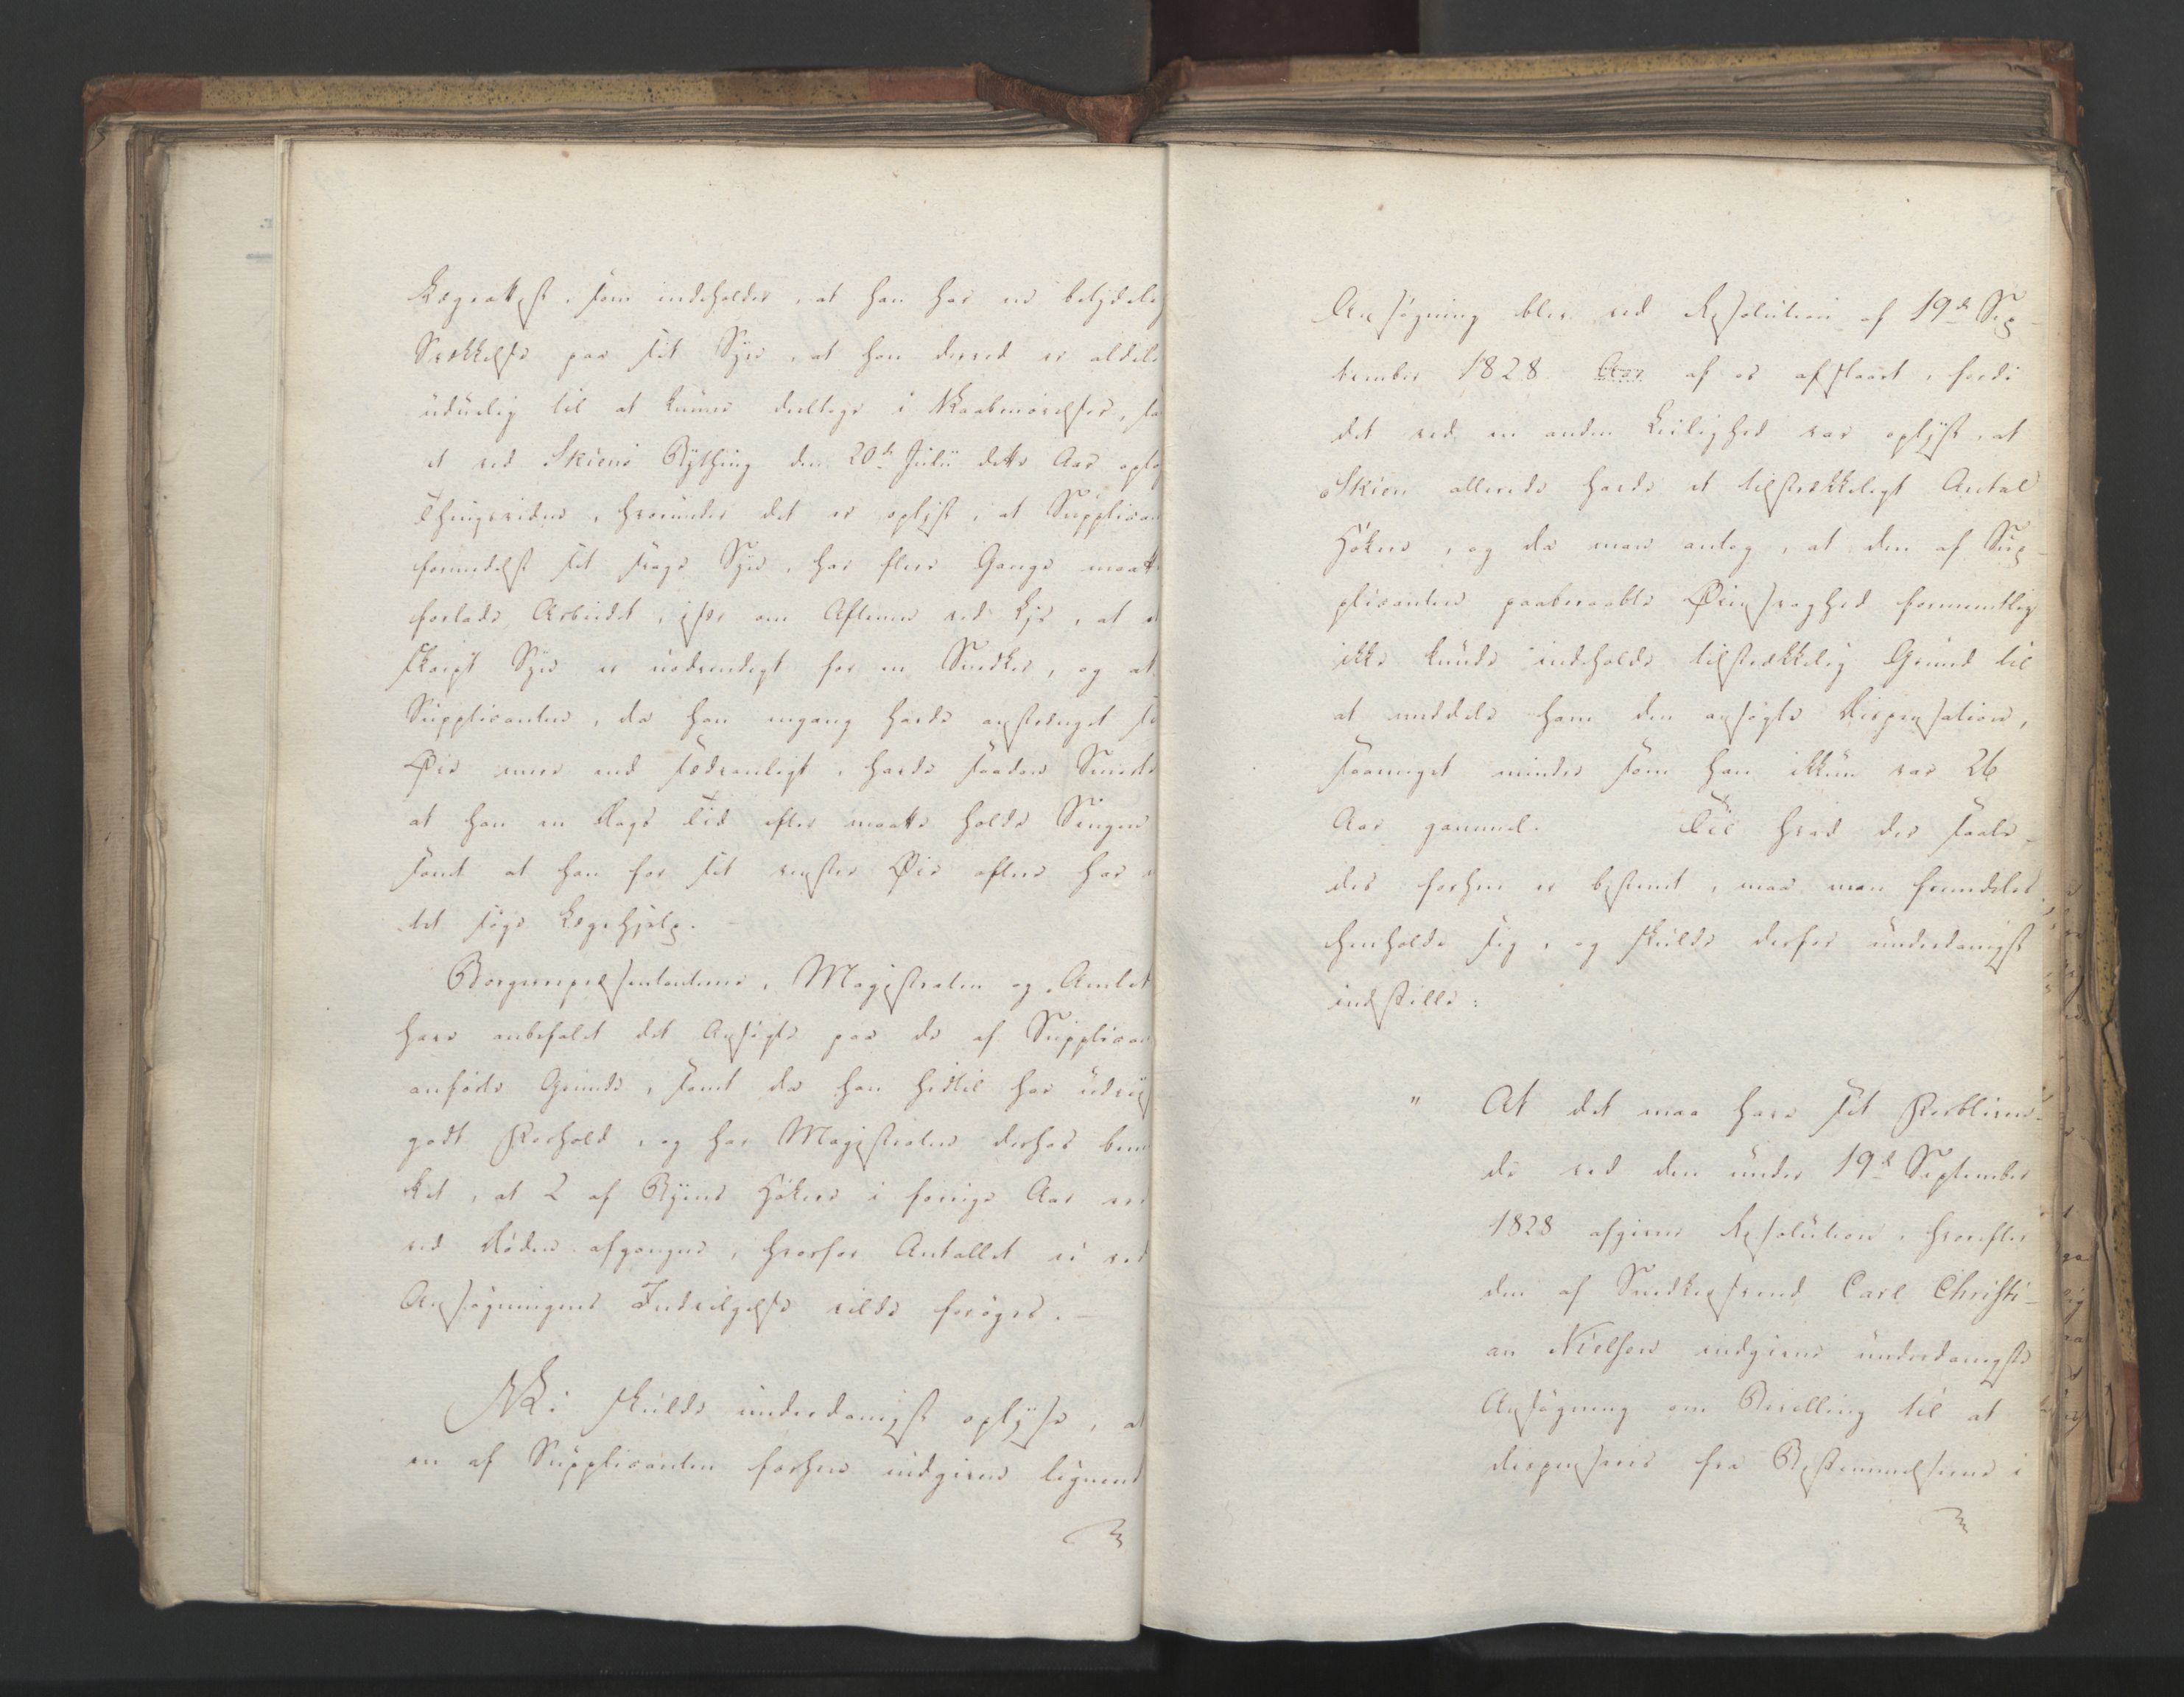 Lægeattest, som indeholder, at han har en betydelig
Svækkelse paa sit Syn, at han derved er aldeles
uduelig til at kunne deeltage i Vaabenøvelser, sa
et ved Skiens Bything den 20de Julii dette Aar opta
Thingsvidne, hvorunder det er oplyst, at Supplican
formedelst sit svage Syn, har flere Gange maatt
forlade Arbeidet, især om Aftenen ved Lys, at et
skarpt Syn er nødvendigt for en Snedker, og at
Supplicanten, da han engang havde anstrænget si
Øie mere end sædvanligt, havde saadan Smerte
at han en Dags Tid efter maatte holde Sengen
samt at han for sit venstre Øie oftere har
tet søge Lægehjelp. –
Borgerrepræsentanterne, Magistraten og Amtet
have anbefalet det Ansøgte paa de af Supplican
anførte Grunde, samt da han hidtil har udvii
godt Forhold, og har Magistraten derhos bem
ket, at 2 af Byens Høkere i forrige Aar ere
ved Døden afgangne, hvorfor Antallet ei ved
Ansøgningens Indvilgelse vilde forøges. –
Vi skulde underdanigst oplyse, at
en af Supplicanten forhen indgiven lignend
Ansøgning blev ved Resolution af 19de Sep-
tember 1828 af os afslaaet, fordi
det ved en anden Leilighed var oplyst, at
Skien allerede havde et tilstrækkeligt Antal
Høkere, og da man antog, at den af Sup-
plicanten paaberaabte Øiensvaghed formeentlig
ikke kunde indeholde tilstrækkelig Grund til
at meddele ham den ansøgte Dispensation,
saameget mindre som han ikkun var 26
Aar gammel. Til hvad der saale-
des forhen er bestemt, maa man fremdeles
henholde sig, og skulde derfor underdanigst
indstille:
" At det maa have sit Forblivend-
de ved den under 19de September
1828 afgivne Resolution, hvorefter
den af Snedkersvend Carl Christi-
an Nielsen indgivne underdanigste
Ansøgning om Bevilling til at
dispenseres fra Bestemmelserne i